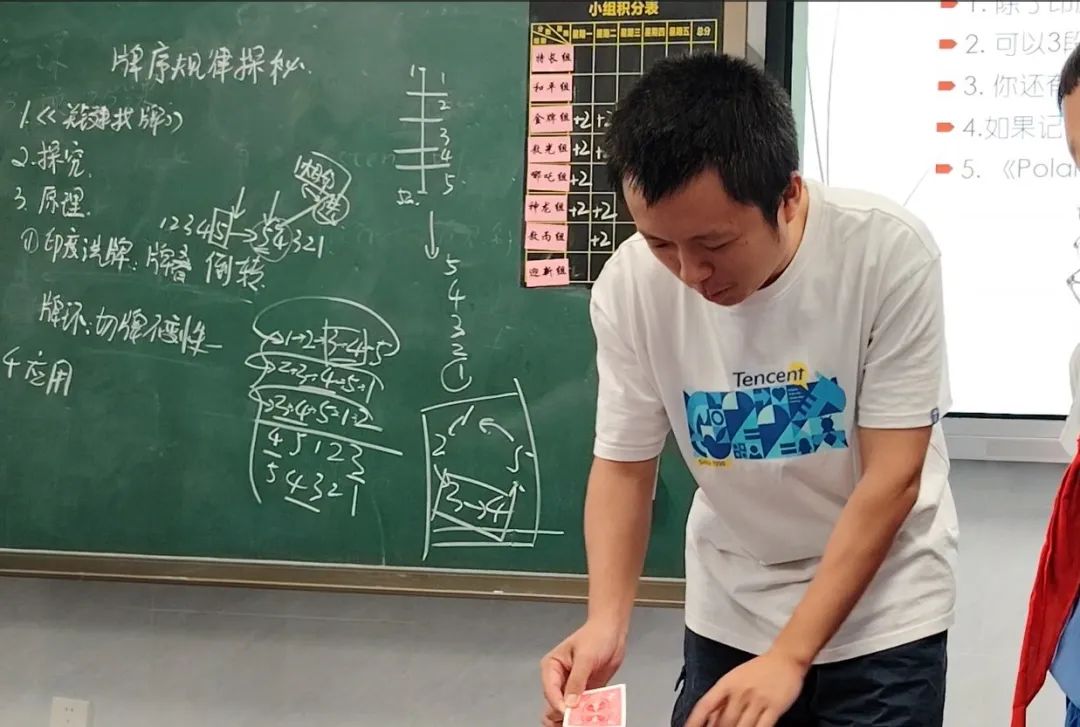 牌序规律探秘
1.《关键找牌》
2.探究.
3.原理.
12345→54321
①印度洗牌:牌叠 倒转.
牌环:切牌不变性
4 应用
1→2→3→4→5
2→3→4→5→1
3→4→5→1→2
4 5 1 2 3
5 4 3 2 1
1
1
2
3
4
5
52.
5
4
3
2
①
1
2
5
3→4
小组积分表
星期一 星期二 星期三 星期四 星期五 总分
特长组
和平组
金牌组 +2 +2
数光组 +2
哪吒组 +2
神龙组 +2 +2
数高组 +2
迎新组
2. 可以3段
3. 你还有
4.如果记
5. 《Polar
Tencent
Since 1998